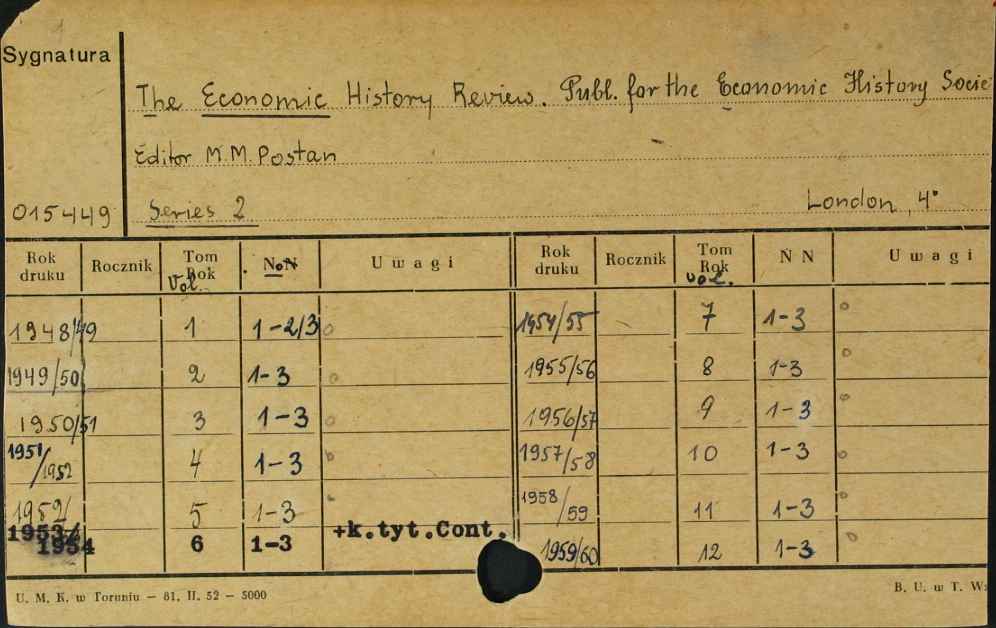 Sygnatura
The Economic History Review. Publ. for the Economic History Socie
Editor M.M. Postan
015449 Series 2. London, 4°
Rok druku Rocznik Tom Rok Vol. No N Uwagi Rok druku Rocznik Tom Rok vol. N N Uwagi
1948/49 1 1-2/3 1954/55 7 1-3
1949/50 2 1-3 1955/56 8 1-3
1950/51 3 1-3 1956/57 9 1-3
1951/1952 4 1-3 1957/58 10 1-3
1952/ 5 1-3 1958/59 11 1-3
1953/1954 6 1-3 +k.tyt.Cont. 1959/60 12 1-3
U. M. K. w Toruniu — 81. II. 52 — 5000 B. U. w T. W: